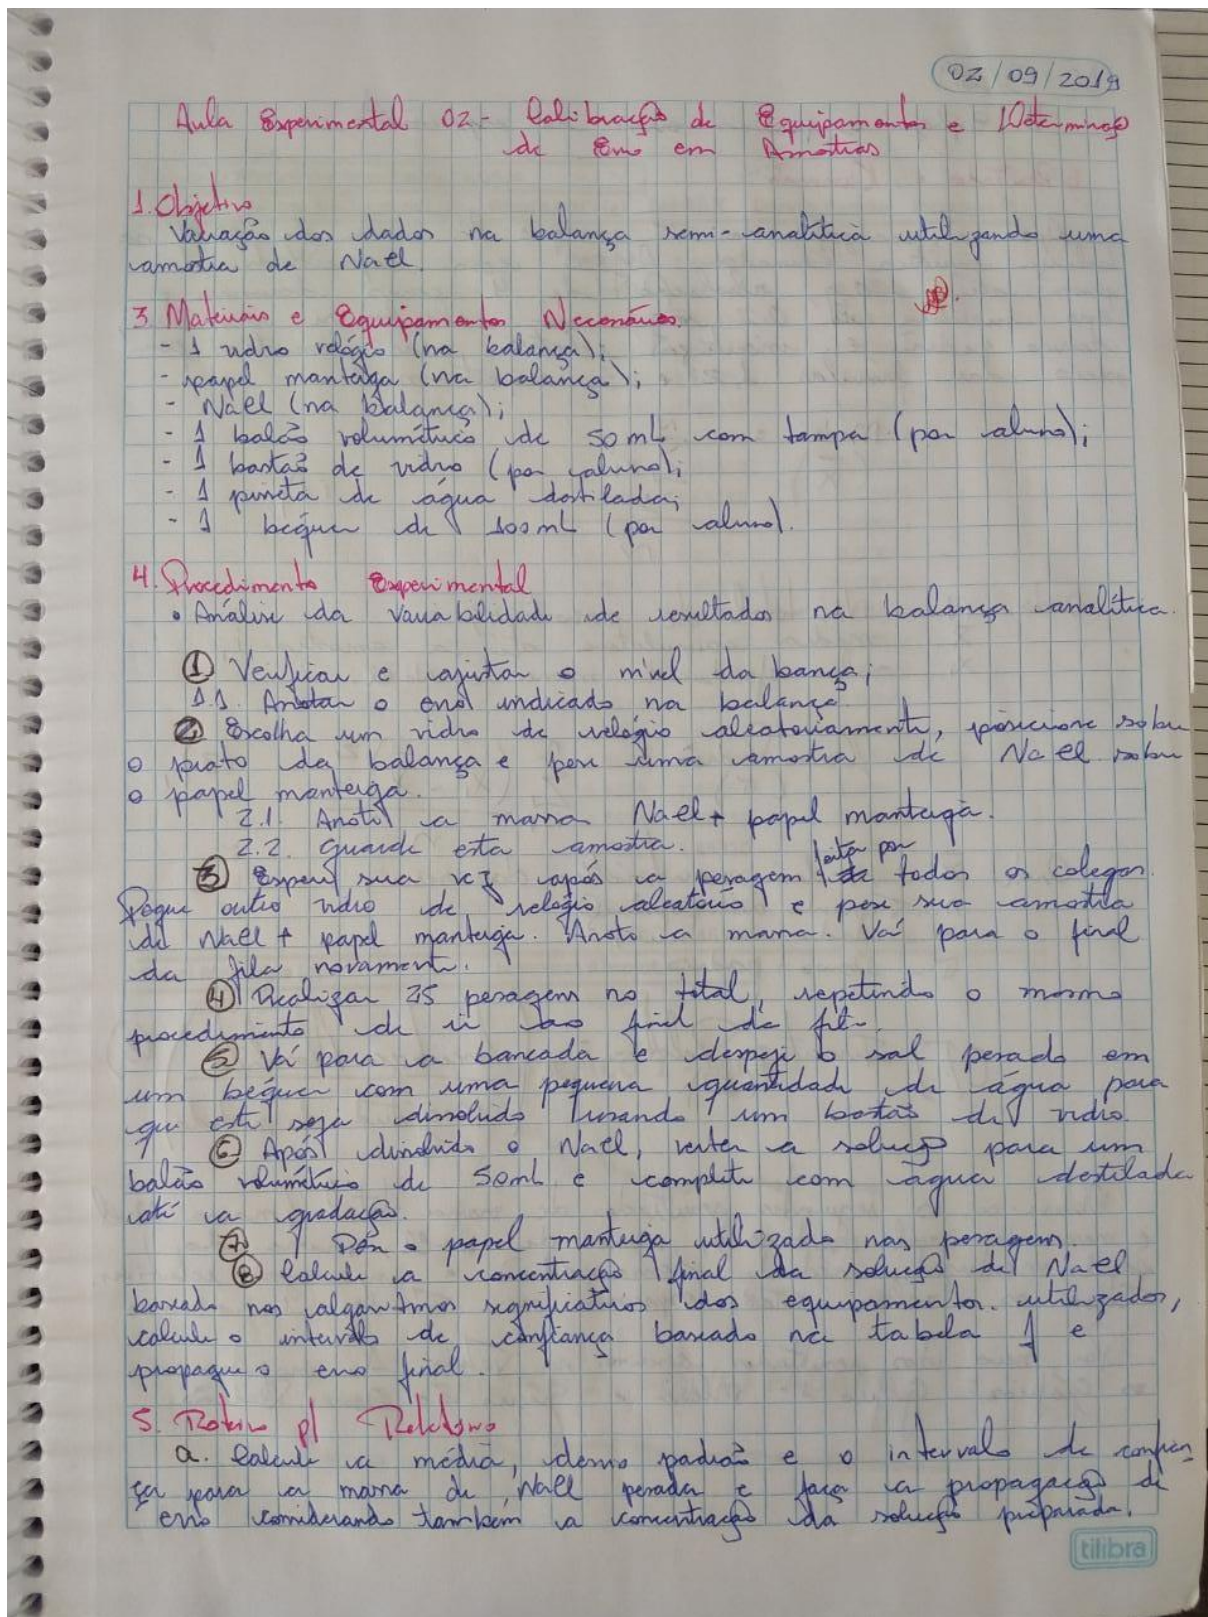 02/09/2019
Aula Experimental 02 - Calibração de Equipamentos e Determinação
de Erro em Amostras
1. Objetivo
Variação dos dados na balança semi-analítica utilizando uma
amostra de NaCl.
3. Materiais e Equipamentos Necessários.
- 1 vidro relógio (na balança);
- papel manteiga (na balança);
- NaCl (na balança);
- 1 balão volumétrico de 50 mL com tampa (por aluno);
- 1 bastão de vidro (por aluno);
- 1 piceta de água destilada;
- 1 béquer de 100 mL (por aluno).
4. Procedimento Experimental
• Análise da variabilidade de resultados na balança analítica.
① Verificar e ajustar o nível da bança;
1.1. Anotar o erro indicado na balança.
② Escolha um vidro de relógio aleatoriamente, posicione sobre
o prato da balança e pese uma amostra de NaCl sobre
o papel manteiga.
2.1. Anote a massa NaCl + papel manteiga.
2.2. Guarde esta amostra.
feita por
③ Espere sua vez após a pesagem todos os colegas.
Pegue outro vidro de relógio aleatório e pese sua amostra
de NaCl + papel manteiga. Anote a massa. Vá para o final
da fila novamente.
④ Realizar 25 pesagens no total, repetindo o mesmo
procedimento de ir ao final da fila.
⑤ Vá para a bancada e despeje o sal pesado em
um béquer com uma pequena quantidade de água para
que este seja dissolvido usando um bastão de vidro.
⑥ Após dissolvido o NaCl, verter a solução para um
balão volumétrico de 50mL e complete com água destilada
até a gradação.
⑦ o papel manteiga utilizado nas pesagens.
⑧ Calcule a concentração final da solução de NaCl
baseado nos algarismos significativos dos equipamentos utilizados,
calcule o intervalo de confiança baseado na tabela 1 e
propague o erro final.
5. Roteiro p/ Relatório
a. Calcule a média, desvio padrão e o intervalo de confian
ça para a massa de NaCl pesada e faça a propagação de
erro considerando também a concentração da solução preparada.
tilibra